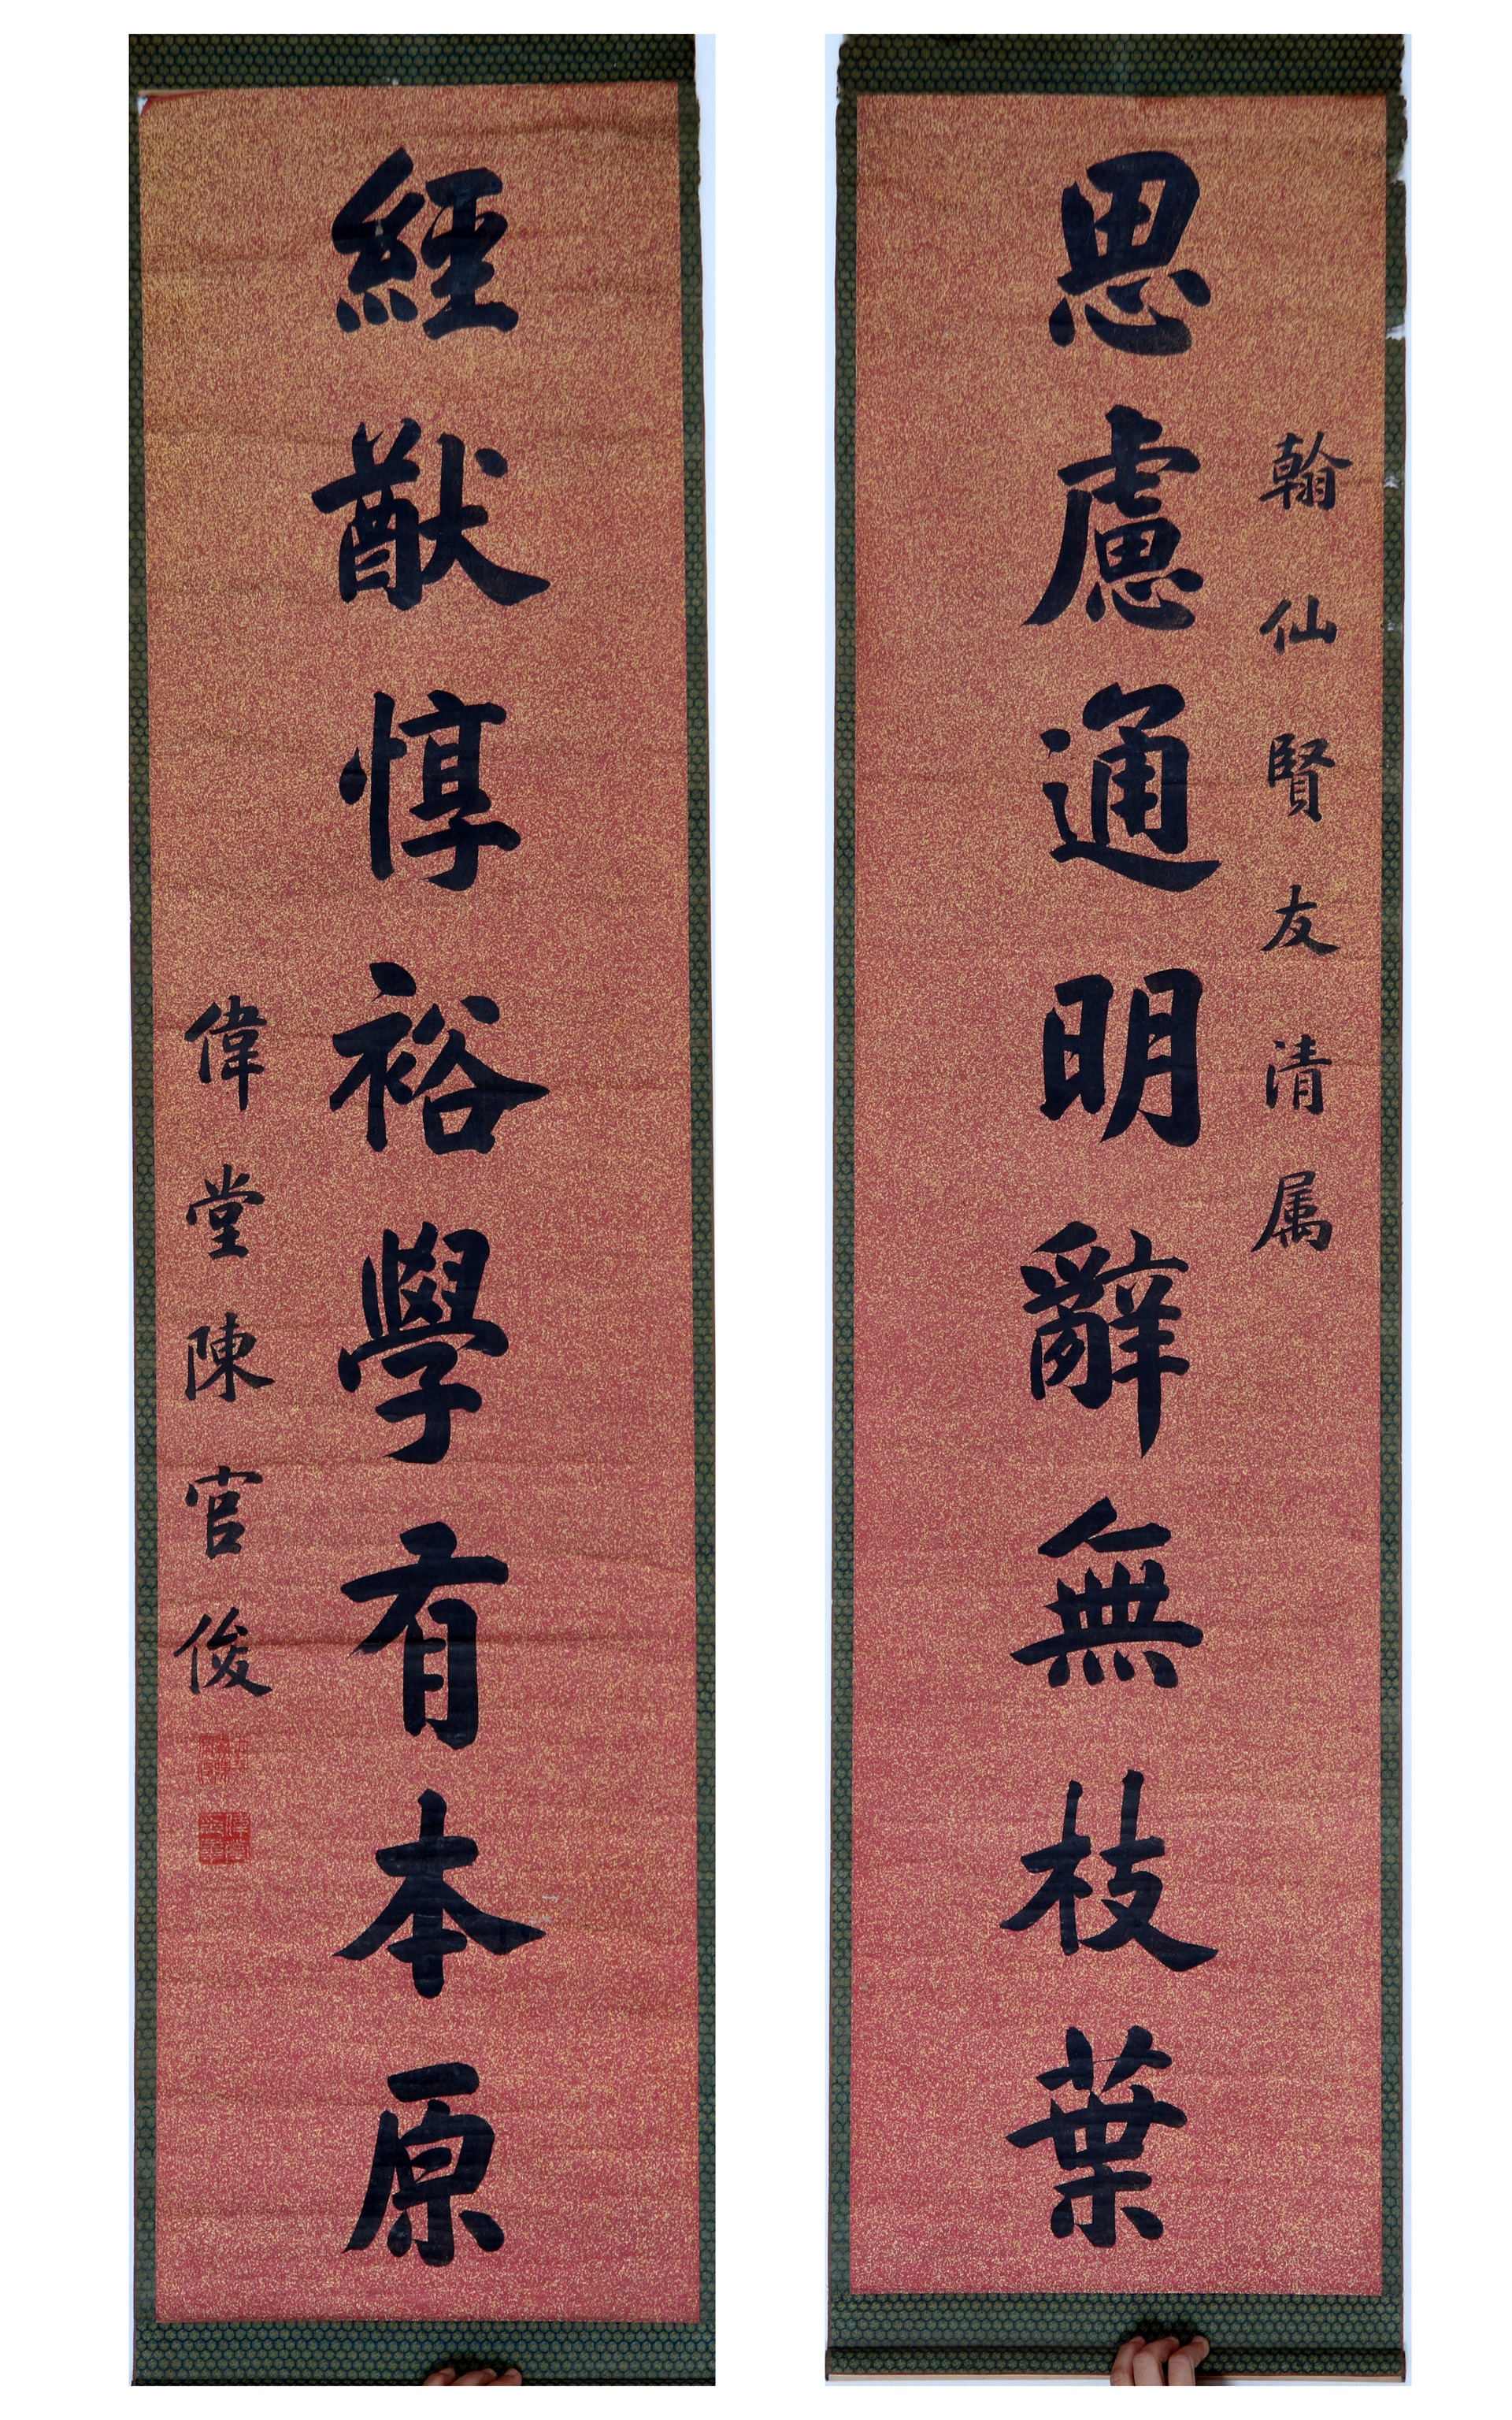 翰仙賢友清属
思慮通明辭無枝葉
經猷惇裕學有本原
偉堂陳官俊